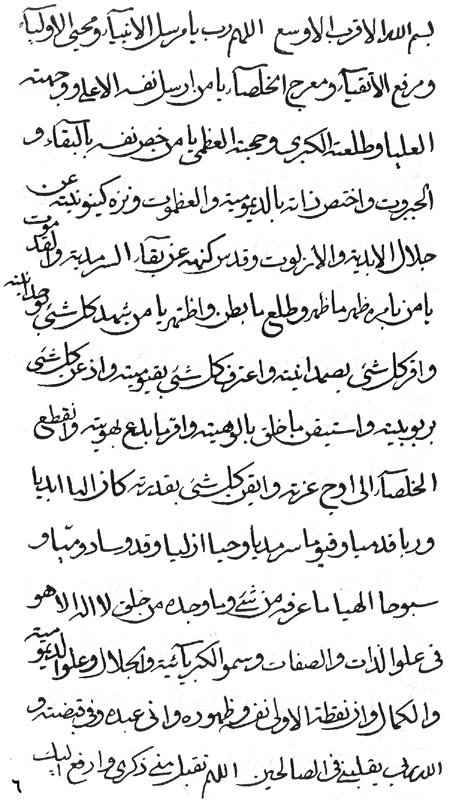 بسم الله الاقرب الاوسع اللهم رب يا مرسل الانبيآء ومحيي الاوليآء
ومرفع الاتقيآء ومعرج الخلصآء يا من ارسل نفسه الاعلى ووجهته
العليا وطلعته الكبرى وحجته العظمى يا من خص نفسه بالبقآء و
الجبروت واختص ذاته بالديومية والعظموت ونزه كينونيته عن
جلال الابدية والازلوت وقدس كنهه عن بقآء السرمدية والقدموت
يا من بامره ظهر ما ظهر وطلع ما بطن واظتهر يا من شهد كل شئ بوحدانيته
واقر كل شئ بصمدانيته واعترف كل شئ بقيوميته واذعن كل شئ
بربوبيته واستيقن ما خلق بالوهيته واقر ما بدع بهويته وانقطع
الخلصآء الى اوج عزته وايقن كل شئ بقدرته كان الها ابديا
وربا قدميا وقيوما سرمديا وحيا ازليا وقدوسا دوميا و
سبوحا الهيا ما عرفه من شئ وما وجده من خلق لا اله الا هو
فى علو الذات والصفات وسمو الكبريآئية والجلال وعلو الديومية
والكمال وان نقطة الاولى نفسه وظهوره وانى عبده وفى قبضته و
الله ربى يقلبنى فى الصالحين اللهم تقبل منى ذكرى وارفع اليك
٦